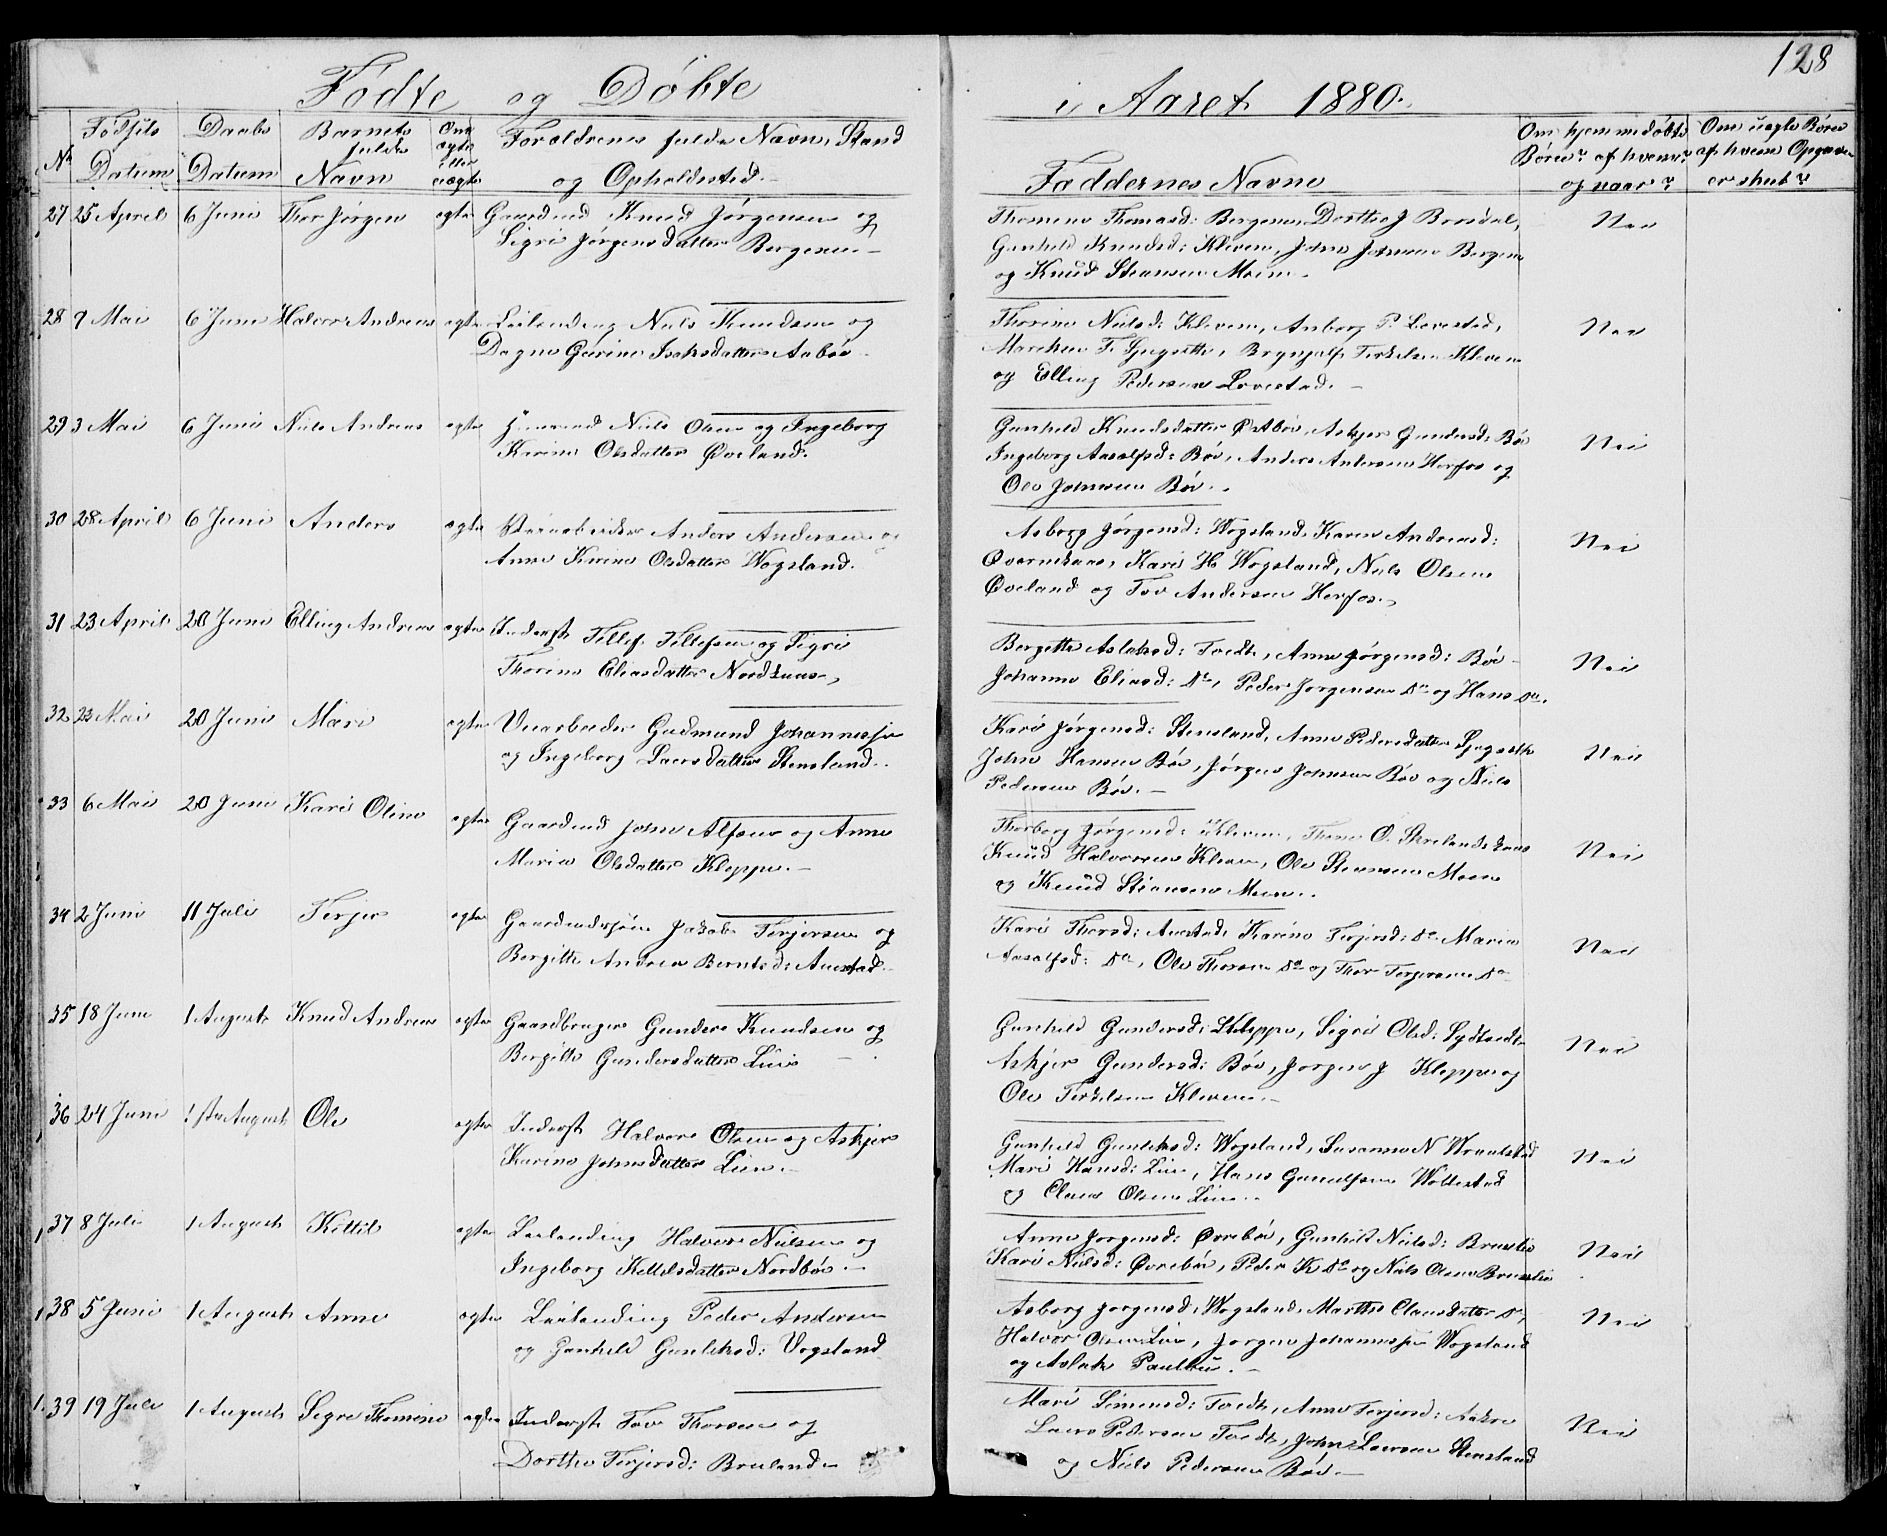 128
Fødte og Døbte i Aaret 1880.
No
Fødsels Datum
Daabs Datum
Barnets fulde Navn
Om ægte eller uægte
Forældrenes fulde Navn, Stand og Opholdssted.
Faddernes Navne
Om hjemmedøbte Børn? af hvem? og naar?
Om uægte Børn af hvem Opgaven er skeet?
27 25 April 6 Juni Thor Jørgen ægte Gaardmd Knud Jørgensen og
Sigri Jørgensdatter Bergene
Thomine Thomasd: Bergene, Dorthe J
Gunhild Knudsd: Kleven, John Johnsen Bergene
og Knud Stensen Moen.
Nei
28 7 Mai 6 Juni Halvor Andreas ægte Leilending Niels Knudsen og
Dagne Gurine Isaksdatter Aabøe
Thorine Nielsd: Kleven, Anborg P. Lovestad,
Marthen T. Brynjulf Terkelsen Kleven
og Elling Pedersen Lovestad.
Nei
29 3 Mai 6 Juni Niels Andreas ægte Niels Olsen og Ingeborg
Karine Olsdatter Øveland.
Gunhild Knudsdatter Askjer Gundersd: Bøe
Ingeborg Aasulfsd: Bøe, Anders Andersen Herfos og
Ole Johnsen Bøe.
Nei
30 28 April 6 Juni Anders ægte Anders Andersen og
Anne Karine Olsdatter Wogsland.
Asborg Jørgensd: Wogsland, Karen Andreasd:
Kari H. Wogsland, Niels Olsen
Øveland og Tov Andersen Herfos.
Nei
31 23 April 20 Juni Elling Andreas ægte Inderst Tellef Tellefsen og Sigri
Thorine Eliasdatter
Bergette Aslaksd: Tvedt, Anne Jørgensd: Bøe
Johanne Eliasd: Do, Peder Jørgensen Do og Hans Do.
Nei
32 23 Mai 20 Juni Mari ægte Veiarbeider Gudmund Johannessen
og Ingeborg Laersdatter Stensland.
Kari Jørgensd: Stensland, Anne Pedersdatter
John Hansen Bøe, Jørgen Johnsen Bøe og Niels
Pedersen Bøe.
Nei
33 6 Mai 20 Juni Kari Oline ægte Gaardmd John Alfsen og Anne
Maria Olsdatter Kleppe.
Thorborg Jørgensd: Kleven, Thone O.
Knud Halvorsen Kleven, Ole Stensen Moen
og Knud Stensen Moen.
Nei
34 2 Juni 11 Juli Terjer ægte Gaardmdssøn Jakob Terjersen og
Bergitte Andrea Berntsd: Austad
Kari Thorsd: Austad, Karine Terjersd: Do Maria
Aasulfsd: Do, Ole Thorsen Do og Thor Terjersen Do
Nei
35 18 Juni 1 August Knud Andreas ægte Gaardbruger Gunder Knudsen og
Bergitte Gundersdatter Lien
Gunhild Gundersd: Kleppe, Sigri Olsd:
Askjer Gundersd: Bøe, Jørgen J Kleppe og
Ole Terkelsen Kleven.
Nei
36 24 Juni 1ste August Ole ægte Inderst Halvor Olsen og Askjer
Karine Johnsdatter Lien.
Gunhild Gunleksd: Wogsland, Susanne N
Mari Hansd: Lien, Hans Gunulfsen
og Claus Olsen Lien.
Nei
37 8 Juli 1 August Kittil ægte Leilending Halvor Nielsen og
Ingeborg Kittilsdatter Nordbøe.
Anne Jørgensd: Øvrebøe, Gunhild Nielsd: Bruslie
Kari Nielsd: Øvrebøe, Peder K Do og Niels Olsen Bruslie
Nei
38 5 Juni 1 August Anne ægte Leilending Peder Andersen
og Gunhild Gunleksd: Vogsland
Asborg Jørgensd: Wogsland, Marthe Clausdatter Do,
Halvor Olsen Lien, Jørgen Johannessen Wogsland
og Aslak Paulsen.
Nei
39 19 Juli 1 August Segre Thomine ægte Inderst Tov Thorsen og
Dorthe Terjersd: Bruland
Mari Simensd: Tvedt, Anne Terjersd:
Laers Pedersen Tvedt, John Laersen Stensland
og Niels Pedersen Bøe.
Nei